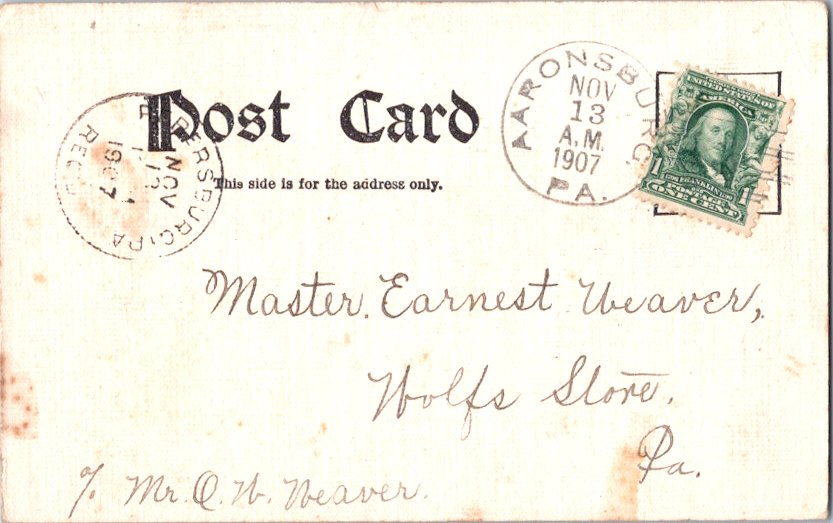 Post Card
This side is for the address only.
AARONSBURG,
NOV
13
A.M.
1907
PA.
REBERSBURG, PA
NOV
1907
REC'D
UNITED STATES OF
AMERICA
1 1
FRANKLIN
POSTAGE
ONE CENT
Master. Earnest Weaver,
Wolfs Store.
Pa.
% Mr. O. W. Weaver.